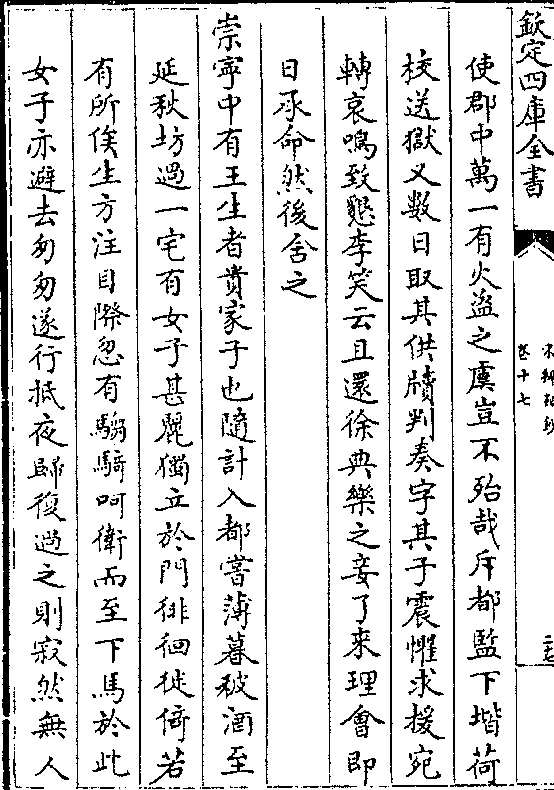 欽定四庫全書
卷十七
使郡中萬一有火盜之虞豈不殆哉斥都監下堦荷
校送獄又數日取其供牘判奏字其子震懼求援宛
轉哀鳴致懇李笑云且還徐典樂之妾了來理會即
日承命然後舍之
崇寧中有王生者貴家子也隨計入都嘗薄暮被酒至
延秋坊過一宅有女子甚麗獨立於門徘徊徙倚若
有所俟生方注目際忽有騶騎呵衛而至下馬於此
女子亦避去匆匆遂行抵夜歸復過之則寂然無人